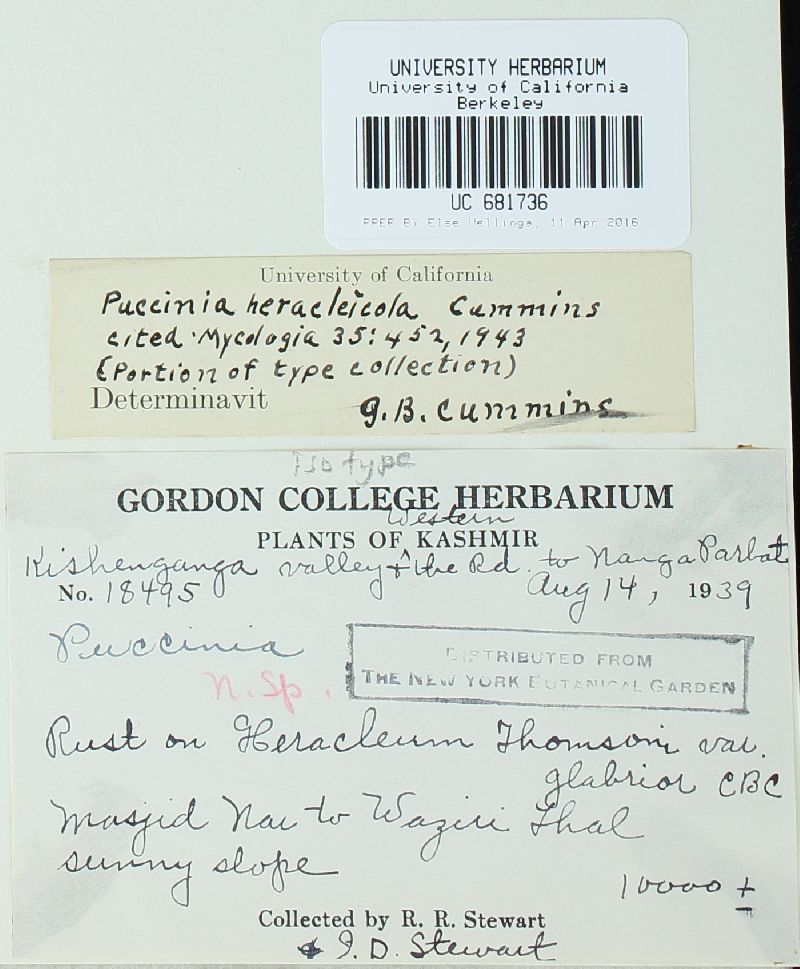 UNIVERSITY HERBARIUM
University of California
Berkeley
UC 681736
PREP BY Else Vellinga, 11 Apr 2016
University of California
Puccinia heracleicola Cummins
cited Mycologia 35: 452, 1943
(Portion of type collection)
Determinavit G.B. Cummins
Isotype
GORDON COLLEGE HERBARIUM
Western
PLANTS OF KASHMIR
Kishenganga valley + the Rd. to Nanga Parbat
No. 18495 Aug 14, 1939
Puccinia
N. Sp.
DISTRIBUTED FROM
THE NEW YORK BOTANICAL GARDEN
Rust on Heracleum Thomsoni var.
glabrior CBC
Masjid Nar to Waziri Thal
sunny slope
10000 ±
Collected by R. R. Stewart
& I. D. Stewart